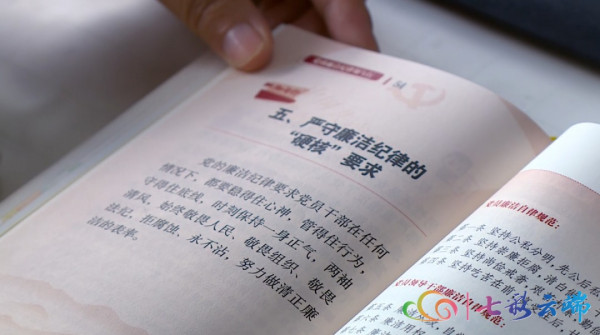 51
五、严守廉洁纪律的
“硬核”要求
党的廉洁纪律要求党员干部在任何
情况下，都要稳得住心神，管得住行为，
守得住底线，时刻保持一身正气，两袖
清风，始终敬畏人民、敬畏组织、敬畏
法纪，拒腐蚀、永不沾，努力做清正廉
洁的表率。
党员廉洁自律规范：
第一条 坚持公私分明，先公后私
第二条 坚持崇廉拒腐，清白
第三条 坚持尚俭戒奢
第四条 坚持吃苦在前
党员领导干部廉洁自律规范：
第五条
第六条 廉洁用权
七彩云端